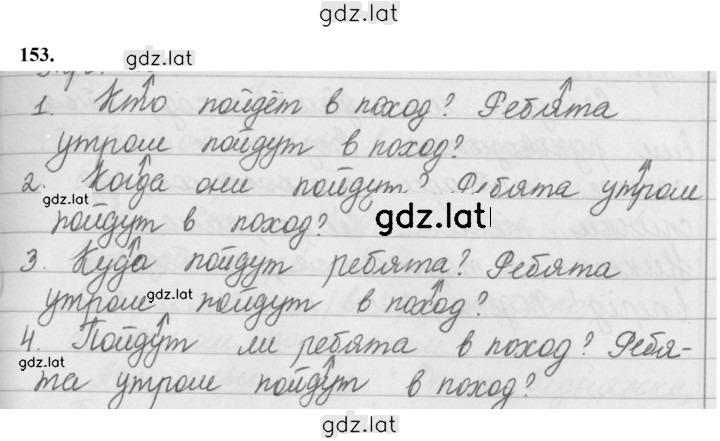 gdz.lat
153.
gdz.lat
1. Кто пойдёт в поход? Ребята
утром пойдут в поход?
2. Когда они пойдут? Ребята утром
gdz.lat
пойдут в поход?
gdz.lat
3. Куда пойдут ребята? Ребята
утром пойдут в поход?
gdz.lat
4. Пойдут ли ребята в поход? Ребя-
gdz.lat
та утром пойдут в поход?
gdz.lat